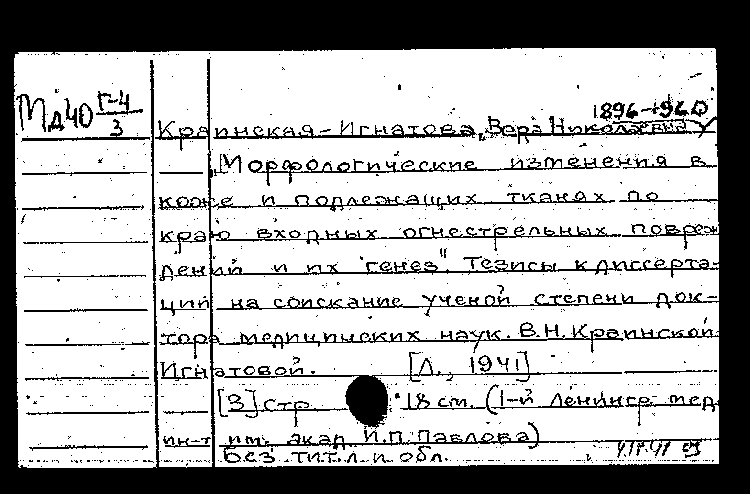 Мд40 Г-4/3
1896-1960
Краинская-Игнатова, Вера Николаевна
"Морфологические изменения в
коже и подлежащих тканях по
краю входных огнестрельных повреж
дений и их генез". Тезисы к диссерта-
ции на соискание ученой степени док-
тора медицинских наук. В.Н. Краинской-
Игнатовой. [Л., 1941]
[3] стр. 18 см. (1-й Ленингр. мед.
ин-т им. акад. И.П. Павлова)
Без тит. л. и обл.